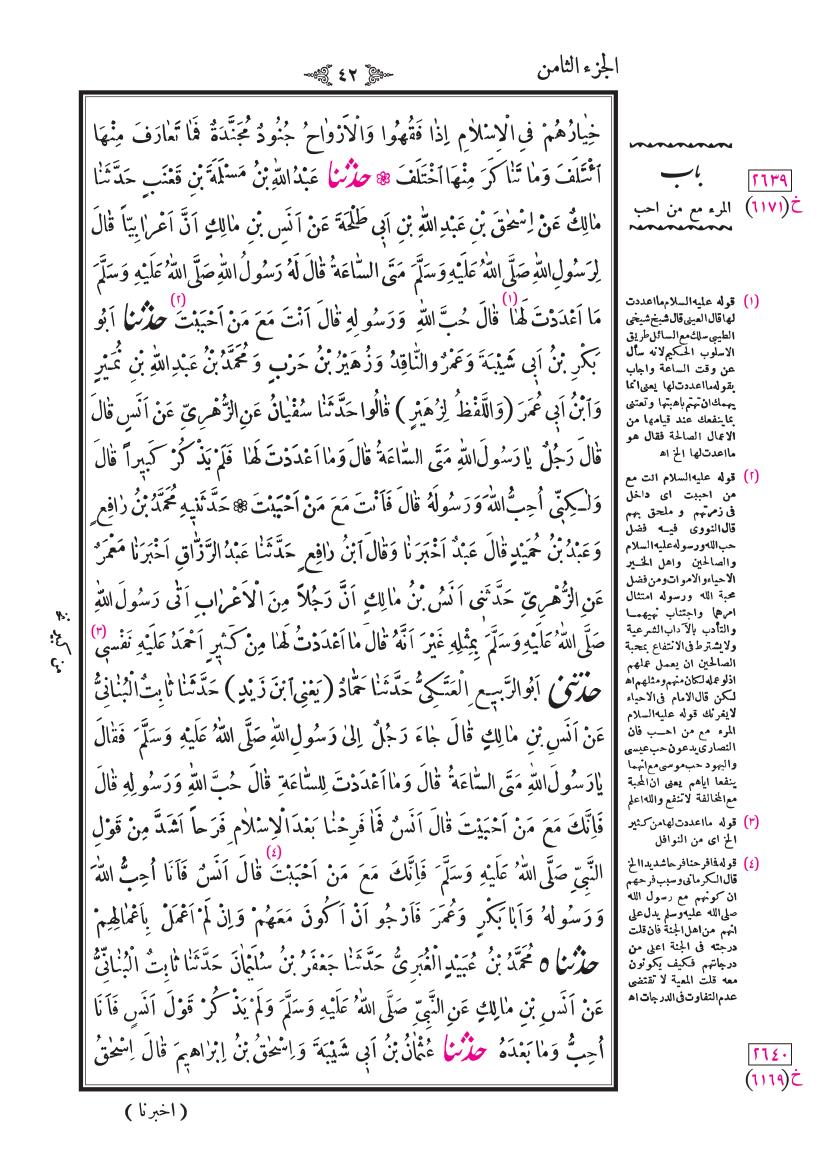 الجزء الثامن
٤٢
خِيَارُهُمْ فِي الْاِسْلَامِ اِذَا فَقُهُوا وَالْاَرْوَاحُ جُنُودٌ مُجَنَّدَةٌ فَمَا تَعَارَفَ مِنْهَا
اَئْتَلَفَ وَمَا تَنَاكَرَ مِنْهَا اخْتَلَفَ ❁ حدثنا عَبْدُ اللهِ بْنُ مَسْلَمَةَ بْنِ قَعْنَبٍ حَدَّثَنَا
مَالِكٌ عَنْ اِسْحٰقَ بْنِ عَبْدِ اللهِ بْنِ اَبِي طَلْحَةَ عَنْ اَنَسِ بْنِ مَالِكٍ اَنَّ اَعْرَابِيّاً قَالَ
لِرَسُولِ اللهِ صَلَّى اللهُ عَلَيْهِ وَسَلَّمَ مَتَى السَّاعَةُ قَالَ لَهُ رَسُولُ اللهِ صَلَّى اللهُ عَلَيْهِ وَسَلَّمَ
مَا اَعْدَدْتَ لَهَا (١) قَالَ حُبَّ اللهِ وَرَسُولِهِ قَالَ اَنْتَ مَعَ مَنْ اَحْبَبْتَ (٢) حدثنا اَبُو
بَكْرِ بْنُ اَبِي شَيْبَةَ وَعَمْرٌو النَّاقِدُ وَزُهَيْرُ بْنُ حَرْبٍ وَمُحَمَّدُ بْنُ عَبْدِ اللهِ بْنِ نُمَيْرٍ
وَابْنُ اَبِي عُمَرَ (وَاللَّفْظُ لِزُهَيْرٍ) قَالُوا حَدَّثَنَا سُفْيَانُ عَنِ الزُّهْرِيِّ عَنْ اَنَسٍ قَالَ
قَالَ رَجُلٌ يَا رَسُولَ اللهِ مَتَى السَّاعَةُ قَالَ وَمَا اَعْدَدْتَ لَهَا فَلَمْ يَذْكُرْ كَبِيراً قَالَ
وَلٰكِنِّي اُحِبُّ اللهَ وَرَسُولَهُ قَالَ فَاَنْتَ مَعَ مَنْ اَحْبَبْتَ ❁ حَدَّثَنِيهِ مُحَمَّدُ بْنُ رَافِعٍ
وَعَبْدُ بْنُ حُمَيْدٍ قَالَ عَبْدٌ اَخْبَرَنَا وَقَالَ ابْنُ رَافِعٍ حَدَّثَنَا عَبْدُ الرَّزَّاقِ اَخْبَرَنَا مَعْمَرٌ
عَنِ الزُّهْرِيِّ حَدَّثَنِي اَنَسُ بْنُ مَالِكٍ اَنَّ رَجُلاً مِنَ الْاَعْرَابِ اَتَى رَسُولَ اللهِ
صَلَّى اللهُ عَلَيْهِ وَسَلَّمَ بِمِثْلِهِ غَيْرَ اَنَّهُ قَالَ مَا اَعْدَدْتُ لَهَا مِنْ كَثِيرٍ اَحْمَدُ عَلَيْهِ نَفْسِي (٣)
حدثني اَبُو الرَّبِيعِ الْعَتَكِيُّ حَدَّثَنَا حَمَّادٌ (يَعْنِي ابْنَ زَيْدٍ) حَدَّثَنَا ثَابِتٌ الْبُنَانِيُّ
عَنْ اَنَسِ بْنِ مَالِكٍ قَالَ جَاءَ رَجُلٌ اِلَى رَسُولِ اللهِ صَلَّى اللهُ عَلَيْهِ وَسَلَّمَ فَقَالَ
يَا رَسُولَ اللهِ مَتَى السَّاعَةُ قَالَ وَمَا اَعْدَدْتَ لِلسَّاعَةِ قَالَ حُبَّ اللهِ وَرَسُولِهِ قَالَ
فَاِنَّكَ مَعَ مَنْ اَحْبَبْتَ قَالَ اَنَسٌ فَمَا فَرِحْنَا بَعْدَ الْاِسْلَامِ فَرَحاً اَشَدَّ مِنْ قَوْلِ
النَّبِيِّ صَلَّى اللهُ عَلَيْهِ وَسَلَّمَ فَاِنَّكَ مَعَ مَنْ اَحْبَبْتَ (٤) قَالَ اَنَسٌ فَاَنَا اُحِبُّ اللهَ
وَرَسُولَهُ وَاَبَا بَكْرٍ وَعُمَرَ فَاَرْجُو اَنْ اَكُونَ مَعَهُمْ وَاِنْ لَمْ اَعْمَلْ بِاَعْمَالِهِمْ
حدثنا ٥ مُحَمَّدُ بْنُ عُبَيْدٍ الْغُبَرِيُّ حَدَّثَنَا جَعْفَرُ بْنُ سُلَيْمَانَ حَدَّثَنَا ثَابِتٌ الْبُنَانِيُّ
عَنْ اَنَسِ بْنِ مَالِكٍ عَنِ النَّبِيِّ صَلَّى اللهُ عَلَيْهِ وَسَلَّمَ وَلَمْ يَذْكُرْ قَوْلَ اَنَسٍ فَاَنَا
اُحِبُّ وَمَا بَعْدَهُ حدثنا عُثْمَانُ بْنُ اَبِي شَيْبَةَ وَاِسْحٰقُ بْنُ اِبْرَاهِيمَ قَالَ اِسْحٰقُ
( اخبرنا )
باب
المرء مع من احب
٢٦٣٩
خ (٦١٧١)
(١) قوله عليه السلام ما اعددت
لها قال العيني قال شيخ شيخي
الطيبي سلك مع السائل طريق
الاسلوب الحكيم لانه سأل
عن وقت الساعة واجاب
بقوله ما اعددت لها يعني انما
يهمك ان تهتم باهبتها وتعتني
بما ينفعك عند قيامها من
الاعمال الصالحة فقال هو
ما اعددت لها الخ اه
(٢) قوله عليه السلام انت مع
من احببت اى داخل
فى زمرتهم و ملحق بهم
قال النووى فيه فضل
حب الله ورسوله عليه السلام
والصالحين واهل الخير
الاحياء والاموات ومن فضل
محبة الله ورسوله امتثال
امرهما واجتناب نهيهما
والتأدب بالآداب الشرعية
ولا يشترط فى الانتفاع بمحبة
الصالحين ان يعمل عملهم
اذ لو عمله لكان منهم ومثلهم اه
لكن قال الامام فى الاحياء
لا يغرنك قوله عليه السلام
المرء مع من احب فان
النصارى يدعون حب عيسى
واليهود حب موسى مع انهما
ينفعا اياهم يعنى ان المحبة
مع المخالفة لا تنفع والله اعلم
(٣) قوله ما اعددت لها من كثير
الخ اى من النوافل
(٤) قوله فما فرحنا فرحا شديدا الخ
قال الكرمانى وسبب فرحهم
ان كونهم مع رسول الله
صلى الله عليه وسلم يدل على
انهم من اهل الجنة فان قلت
درجته فى الجنة اعلى من
درجاتهم فكيف يكونون
معه قلت المعية لا تقتضى
عدم التفاوت فى الدرجات اه
٢٦٤٠
خ (٦١٦٩)
من كبير نخ